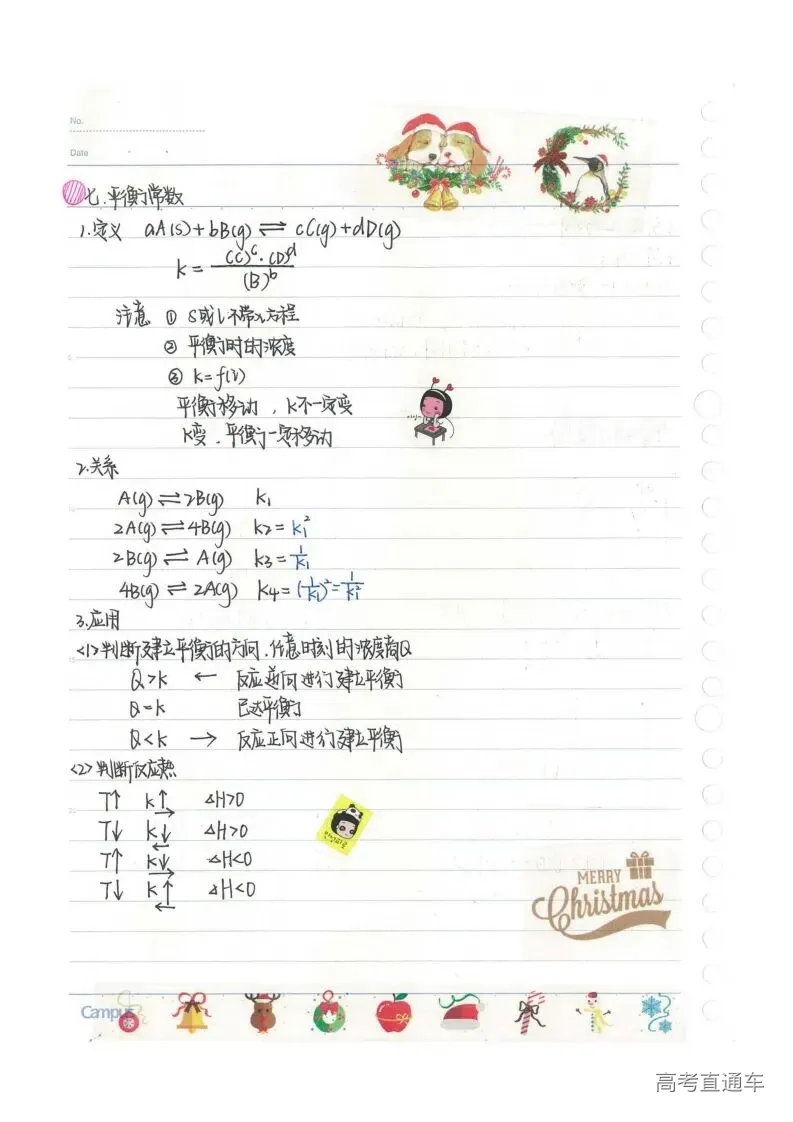 No.
Date
七.平衡常数
1.定义 aA(s)+bB(g)⇌cC(g)+dD(g)
K=(C)^c·(D)^d/(B)^b
注意 ① S或l不带入方程
② 平衡时的浓度
③ K=f(T)
平衡移动，K不一定变
K变．平衡一定移动
2.关系
A(g)⇌2B(g) K₁
2A(g)⇌4B(g) K₂=K₁²
2B(g)⇌A(g) K₃=1/K₁
4B(g)⇌2A(g) K₄=(1/K₁)²=1/K₁²
3.应用
<1>判断建立平衡的方向．任意时刻的浓度商Q
Q>K ← 反应逆向进行建立平衡
Q=K 已达平衡
Q<K → 反应正向进行建立平衡
<2>判断反应热
T↑ K↑ → △H>0
T↓ K↓ ← △H>0
T↑ K↓ → △H<0
T↓ K↑ ← △H<0
MERRY
Christmas
Campus
高考直通车